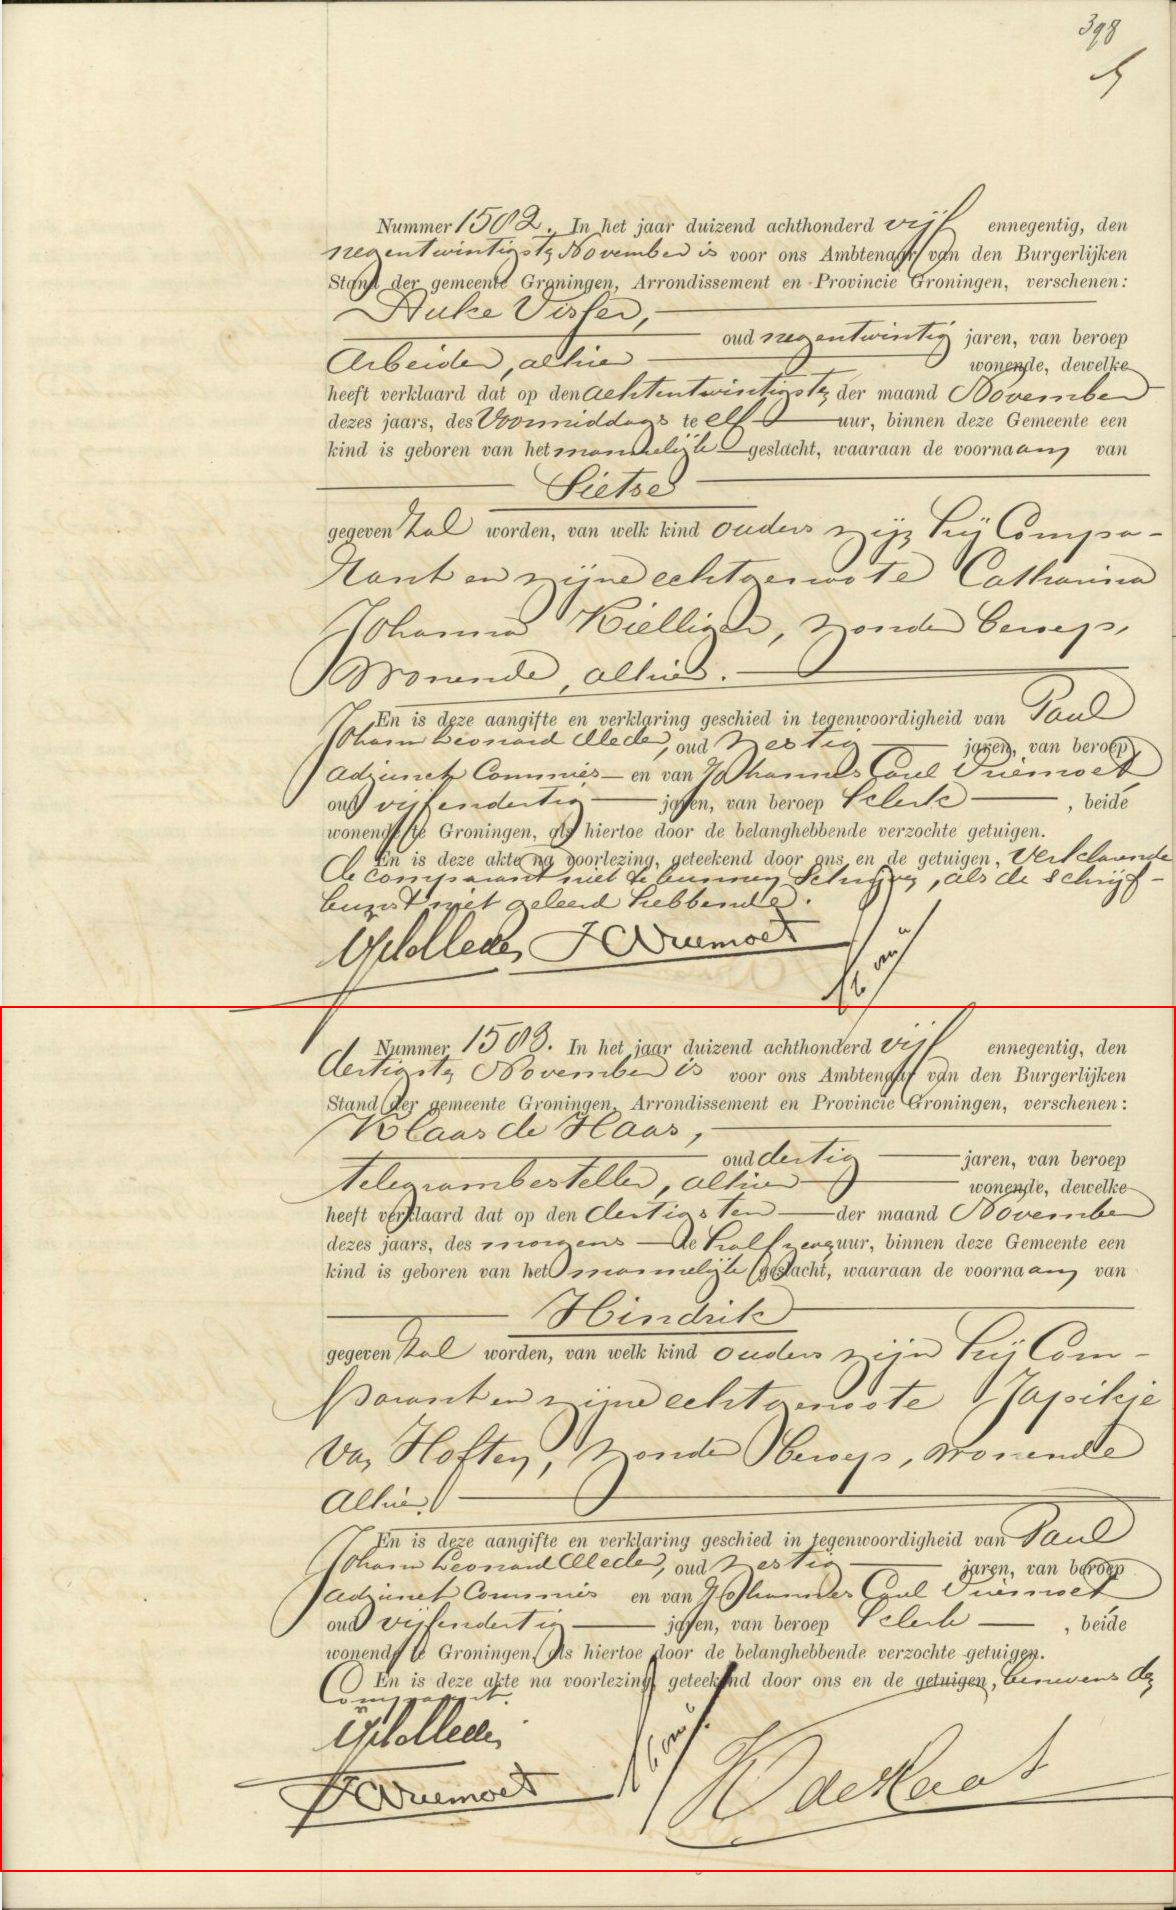 398
Nummer 1502. In het jaar duizend achthonderd vijf ennegentig, den
negentwintigste November is voor ons Ambtenaar van den Burgerlijken
Stand der gemeente Groningen, Arrondissement en Provincie Groningen, verschenen:
Auke Visser,
oud negentwintig jaren, van beroep
Arbeider, alhier wonende, dewelke
heeft verklaard dat op den achtentwintigsten der maand November
dezes jaars, des Voormiddags te elf uur, binnen deze Gemeente een
kind is geboren van het mannelijke geslacht, waaraan de voornaam van
Sietse
gegeven zal worden, van welk kind ouders zijn hij Compa-
rant en zijne echtgenoote Catharina
Johanna Kielliger, zonder beroep,
wonende, alhier.
En is deze aangifte en verklaring geschied in tegenwoordigheid van Paul
Johann Leonard Meder, oud zestig jaren, van beroep
adjunct Commies en van Johannes Carel Vriemoet
oud vijfendertig jaren, van beroep klerk, beide
wonende te Groningen, als hiertoe door de belanghebbende verzochte getuigen.
En is deze akte na voorlezing, geteekend door ons en de getuigen, verklarende
de comparant niet te kunnen schrijven, als de schrijf-
kunst niet geleerd hebbende.
PJLMeder JCVriemoet
Nummer 1503. In het jaar duizend achthonderd vijf ennegentig, den
dertigste November is voor ons Ambtenaar van den Burgerlijken
Stand der gemeente Groningen, Arrondissement en Provincie Groningen, verschenen:
Klaas de Haas,
oud dertig jaren, van beroep
telegrambesteller, alhier wonende, dewelke
heeft verklaard dat op den dertigsten der maand November
dezes jaars, des morgens te half zeven uur, binnen deze Gemeente een
kind is geboren van het mannelijke geslacht, waaraan de voornaam van
Hindrik
gegeven zal worden, van welk kind ouders zijn hij Com-
parant en zijne echtgenoote Japikje
van Hoften, zonder beroep, wonende
alhier.
En is deze aangifte en verklaring geschied in tegenwoordigheid van Paul
Johann Leonard Meder, oud zestig jaren, van beroep
adjunct Commies en van Johannes Carel Vriemoet
oud vijfendertig jaren, van beroep klerk, beide
wonende te Groningen, als hiertoe door de belanghebbende verzochte getuigen.
En is deze akte na voorlezing, geteekend door ons en de getuigen, benevens de
Comparant.
PJLMeder
JCVriemoet K de Haas